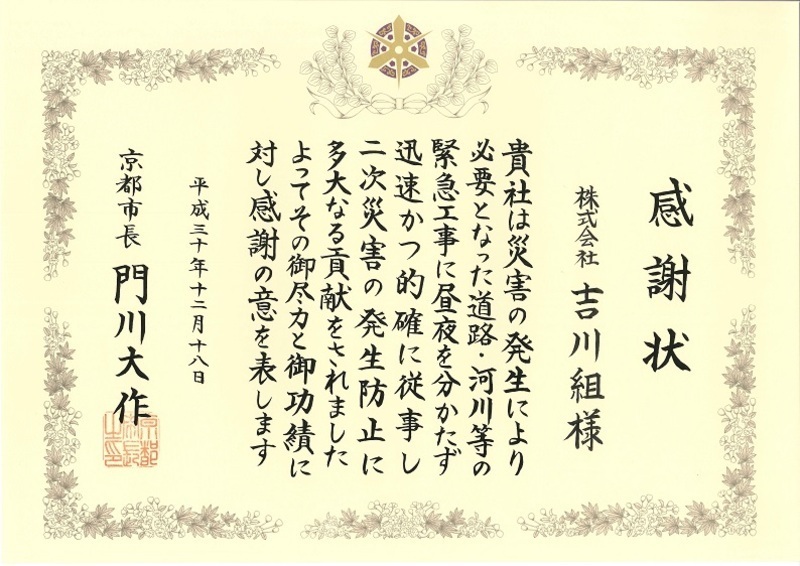 感謝状
株式会社 吉川組様
貴社は災害の発生により
必要となった道路・河川等の
緊急工事に昼夜を分かたず
迅速かつ的確に従事し
二次災害の発生防止に
多大なる貢献をされました
よってその御尽力と御功績に
対し感謝の意を表します
平成三十年十二月十八日
京都市長 門川大作
京都
市長
之印